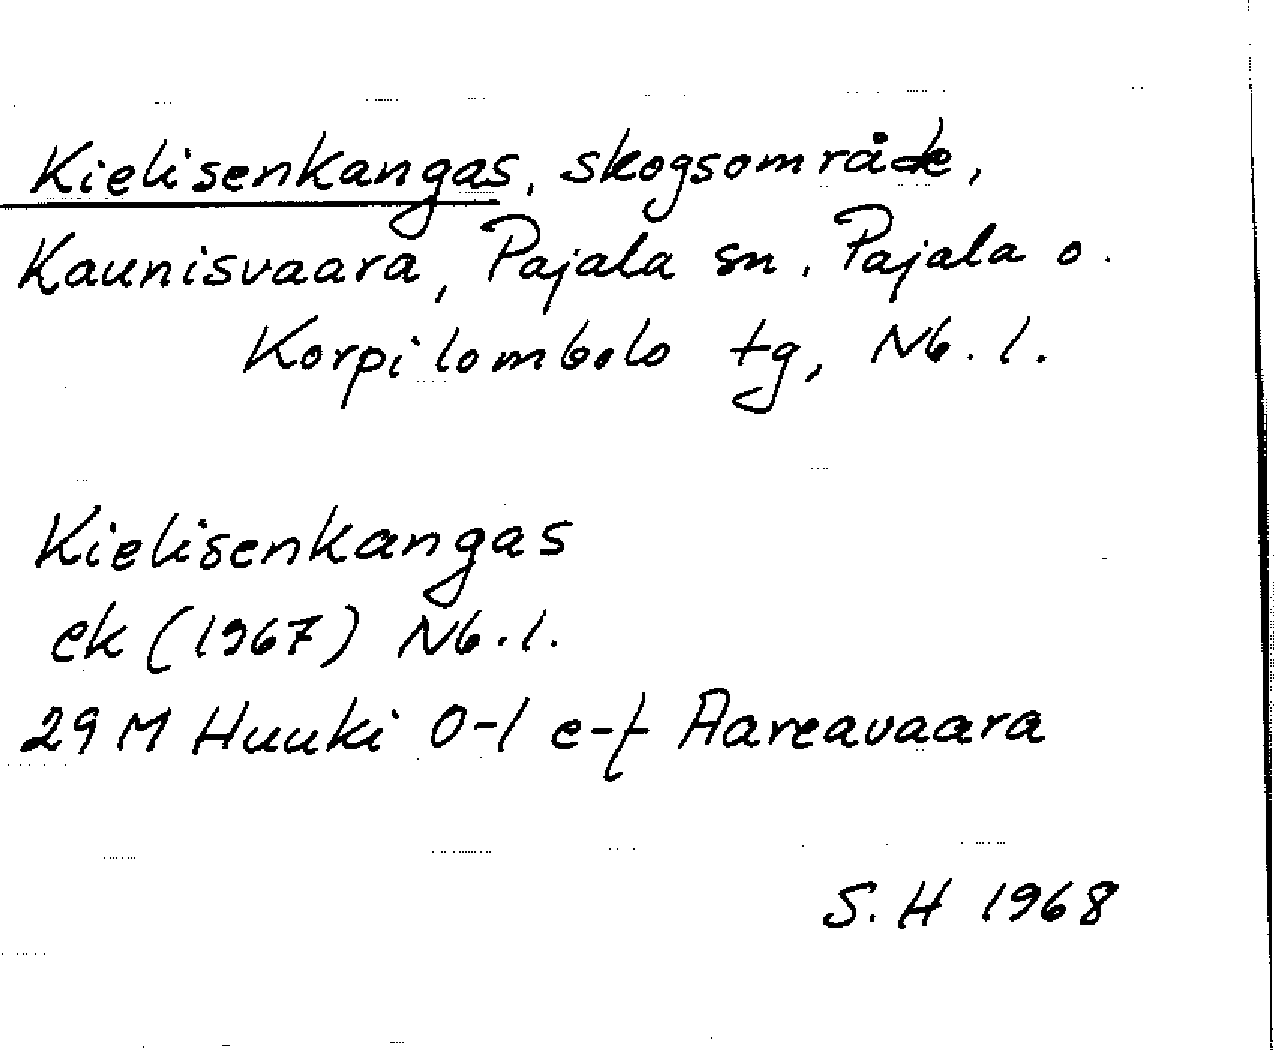 Kielisenkangas, skogsområde,
Kaunisvaara, Pajala sn, Pajala o.
Korpilombolo tg, Nb. l.
Kielisenkangas
ek (1967) Nb. l.
29 M Huuki 0-1 e-f Aareavaara
S. H 1968